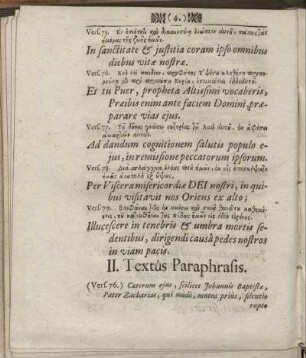 (4.)
Vers. 75. Ἐν ὁσιότητι καὶ δικαιοσύνῃ ἐνώπιον αὐτοῦ, πάσας τὰς
ἡμέρας τῆς ζωῆς ἡμῶν.
In sanctitate & justitia coram ipso omnibus
diebus vitæ nostræ.
Vers. 76. Καὶ σὺ παιδίον, προφήτης ὑψίστου κληθήσῃ
Et tu Puer, propheta Altissimi vocaberis,
Præibis enim ante faciem Domini, præ-
parare vias ejus.
Vers. 77. Τοῦ δοῦναι γνῶσιν σωτηρίας τῷ λαῷ αὐτοῦ, ἐν ἀφέσει
ἁμαρτιῶν αὐτῶν.
Ad dandum cognitionem salutis populo e-
jus, in remissione peccatorum ipsorum.
Vers. 78. Διὰ σπλάγχνα ἐλέους θεοῦ ἡμῶν, ἐν οἷς ἐπεσκέψατο
ἡμᾶς ἀνατολὴ ἐξ ὕψους.
Per Viscera misericordiæ DEI nostri, in qui-
bus visitavit nos Oriens ex alto;
Vers. 79.
Illucescere in tenebris & umbra mortis se-
dentibus, dirigendi causâ pedes nostros
in viam pacis.
II. Textûs Paraphrasis.
(Vers. 76.) Cæterum ejus, scilicet Johannis Baptistæ,
Pater Zacharias, qui modò, mutus priùs, silentio
rupto